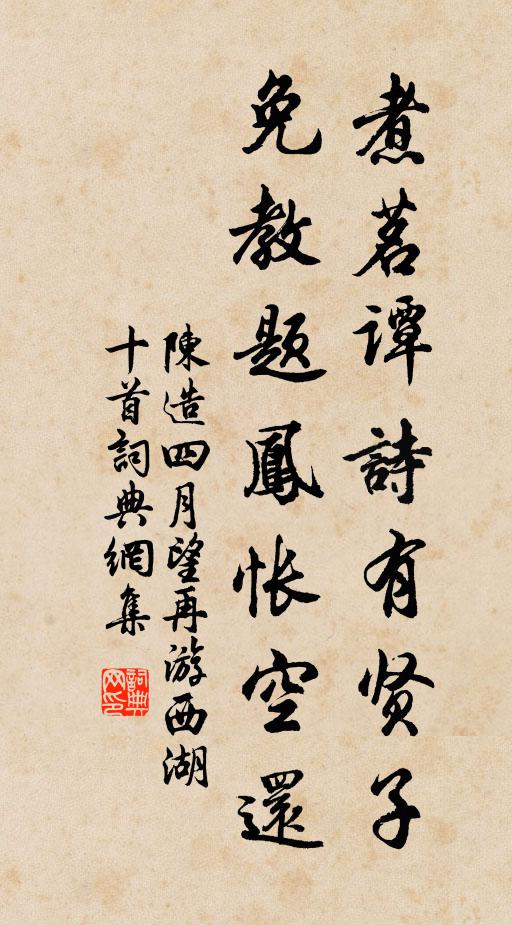 煮茗谭詩有贤子
免教题鳳怅空還
陳造四月望再游西湖
十首詞典網集
詞典
网印